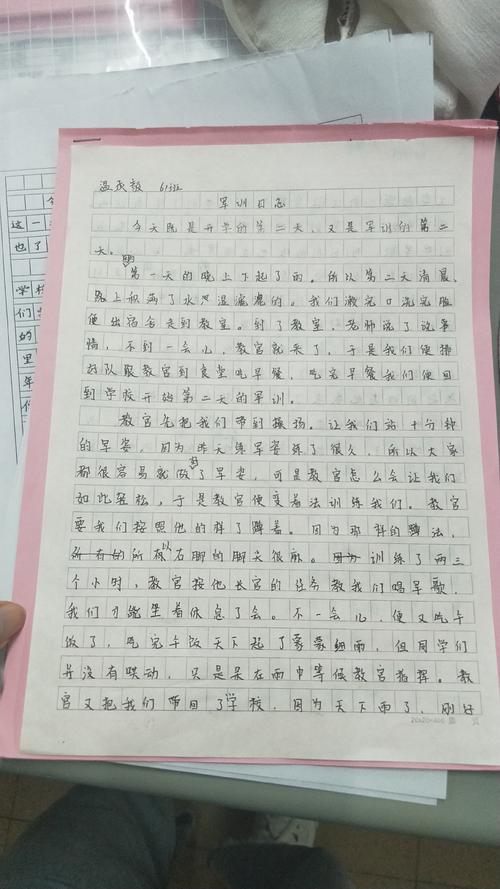 温 613班
军训日志
今天既是开学的第二天，又是军训的第二
天。
第一天的晚上下起了雨。所以第二天清晨，
路上积满了水湿漉漉的。我们漱完口洗完脸
便出宿舍走到教室。到了教室，老师说了说事
情，不到一会儿，教官就来了，于是我们便排
好队跟教官到食堂吃早餐，吃完早餐我们便回
到学校开始第二天的军训。
教官先把我们带到操场。让我们站十分钟
的军姿，因为昨天练军姿练了很久，所以大家
都很容易就做好了军姿，可是教官怎么会让我们
如此轻松，于是教官便变着法训练我们。教官
要我们按照他的样子蹲着。因为那样的蹲法，
所以右脚的脚尖很麻。训练了两三
个小时，教官按他长官的任务教我们唱军歌，
我们才能坐着休息了会。不一会儿，便又吃午
饭了，吃完午饭天下起了蒙蒙细雨，但同学们
并没有跺动，只是呆在雨中等候教官指挥。教
官又把我们带回了学校，因为天下雨了，刚好
20x20=400 第 页
这一
也了
学校
们
的
里
年